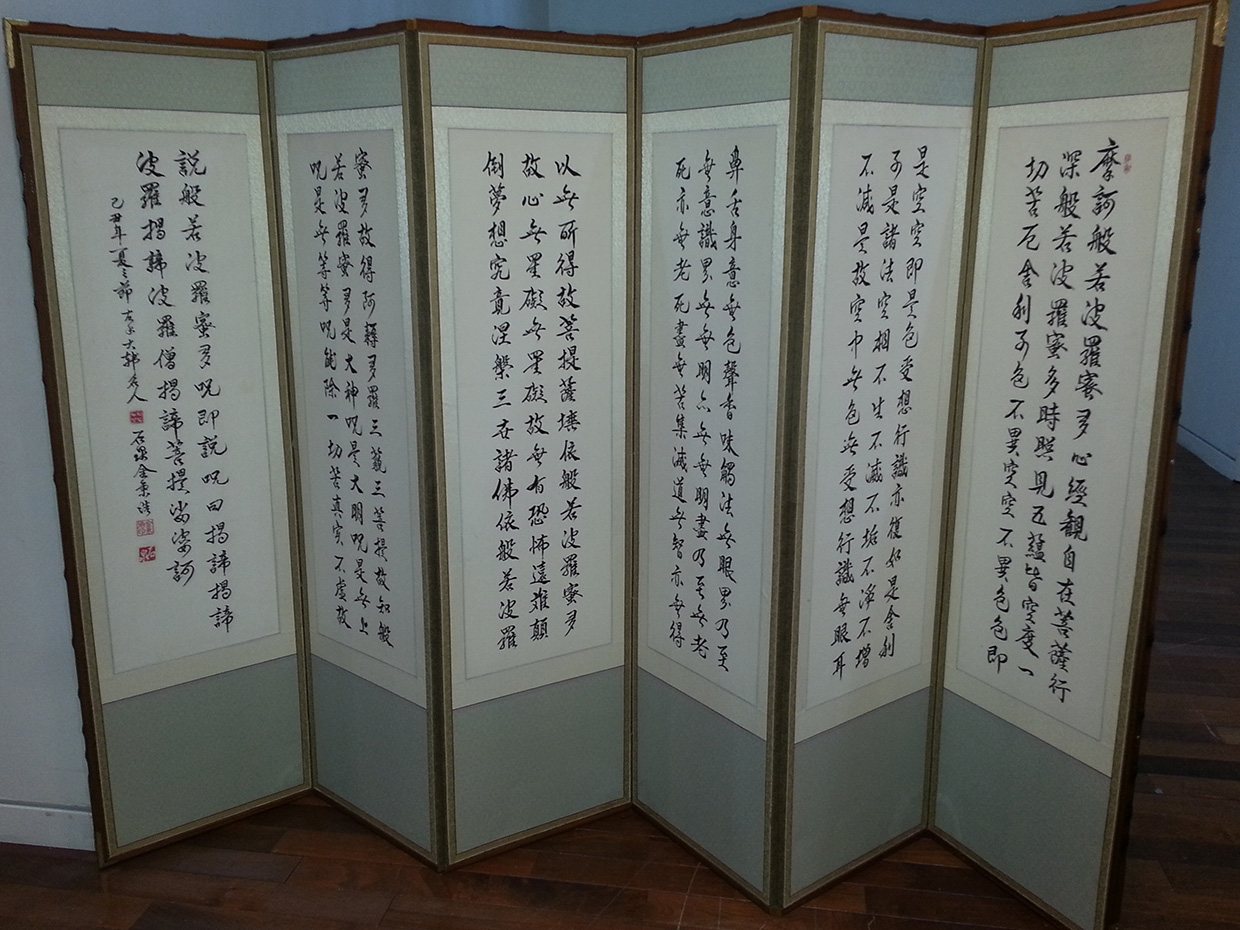 摩訶般若波羅蜜多心經觀自在菩薩行
深般若波羅蜜多時照見五蘊皆空度一
切苦厄舍利子色不異空空不異色色即
是空空即是色受想行識亦復如是舍利
子是諸法空相不生不滅不垢不淨不增
不減是故空中無色無受想行識無眼耳
鼻舌身意無色聲香味觸法無眼界乃至
無意識界無無明亦無無明盡乃至無老
死亦無老死盡無苦集滅道無智亦無得
以無所得故菩提薩埵依般若波羅蜜多
故心無罣礙無罣礙故無有恐怖遠離顛
倒夢想究竟涅槃三世諸佛依般若波羅
蜜多故得阿耨多羅三藐三菩提故知般
若波羅蜜多是大神呪是大明呪是無上
呪是無等等呪能除一切苦真實不虛故
說般若波羅蜜多呪即說呪曰揭諦揭諦
波羅揭諦波羅僧揭諦菩提娑婆訶
己丑年夏之節 大韓 人 金景浩